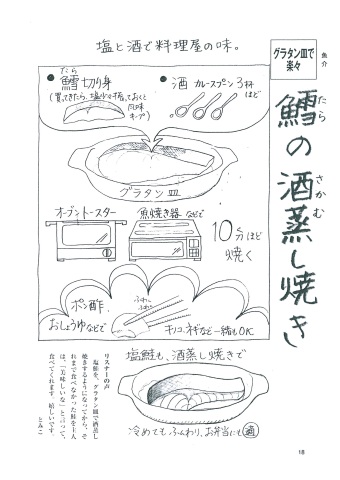 魚介
グラタン皿で
楽々
鱈の酒蒸し焼き
たら
さかむ
塩と酒で料理屋の味。
たら
鱈切り身
(買ってきたら、塩少々ふっておくと
風味
キープ)
酒 カレースプーン3杯
ほど
グラタン皿
オーブントースター
魚焼き器などで
10分ほど
焼く
ポン酢、
おしょうゆなどで
ふわ〜
ふわ〜
キノコ、ネギなど一緒もOK
塩鮭も、酒蒸し焼きで
冷めてもふんわり、お弁当にも
リスナーの声
塩鮭を、グラタン皿で酒蒸し
焼きするようになってから、そ
れまで食べなかった鮭を主人
は、「美味しいな」と言って、
食べてくれます。嬉しいです。
とみこ
18